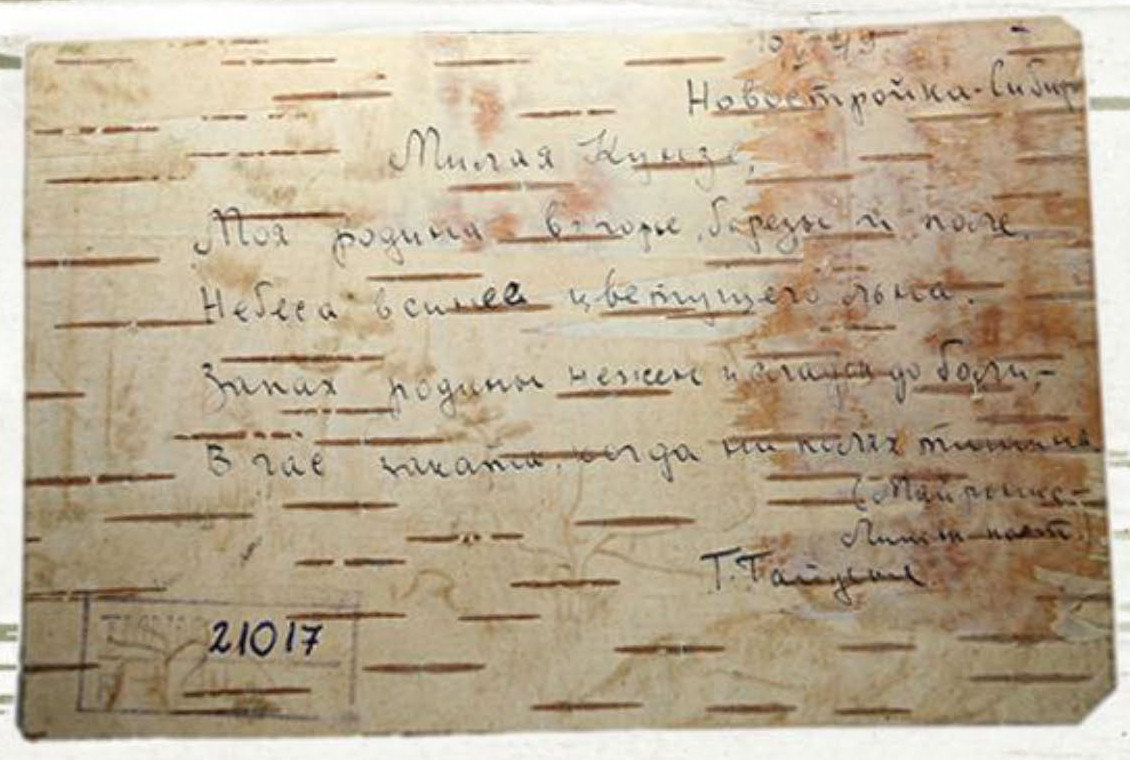 10 V 49
Новостройка-Сибирь
Милая
Моя родина в горе, березы и поле.
Небеса в синее цветущего льна.
Запах родины нежен и сладок до боли,-
В час заката, когда на полях тишина
Т.
21017